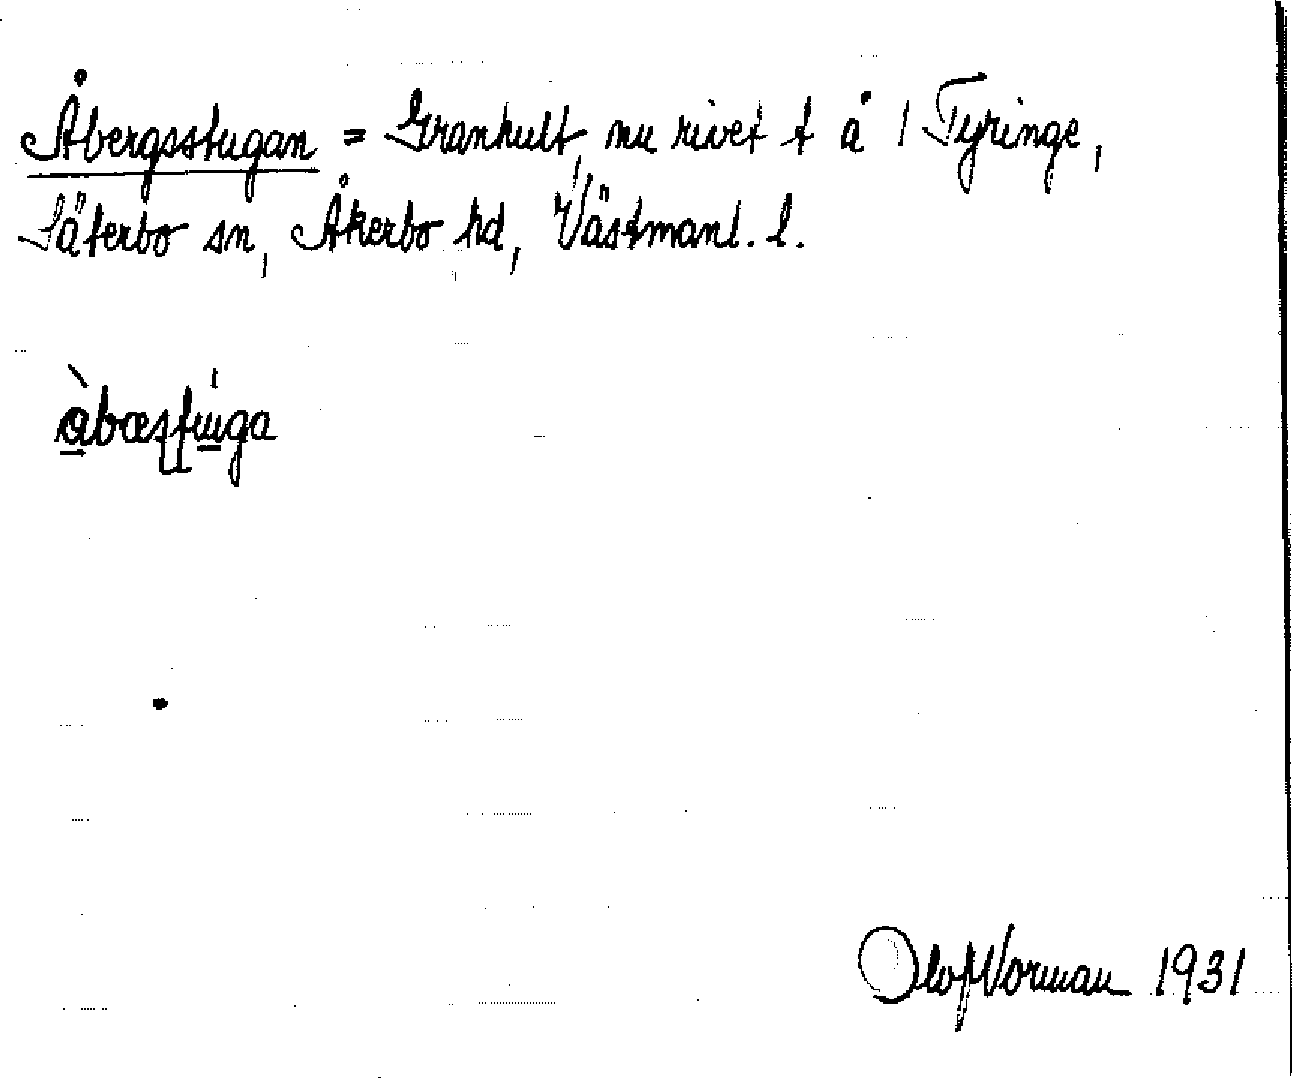 Åbergsstugan = Granhult, nu rivet t å 1 Tyringe,
Säterbo sn, Åkerbo hd, Västmanl. l.
Olof Norman 1931